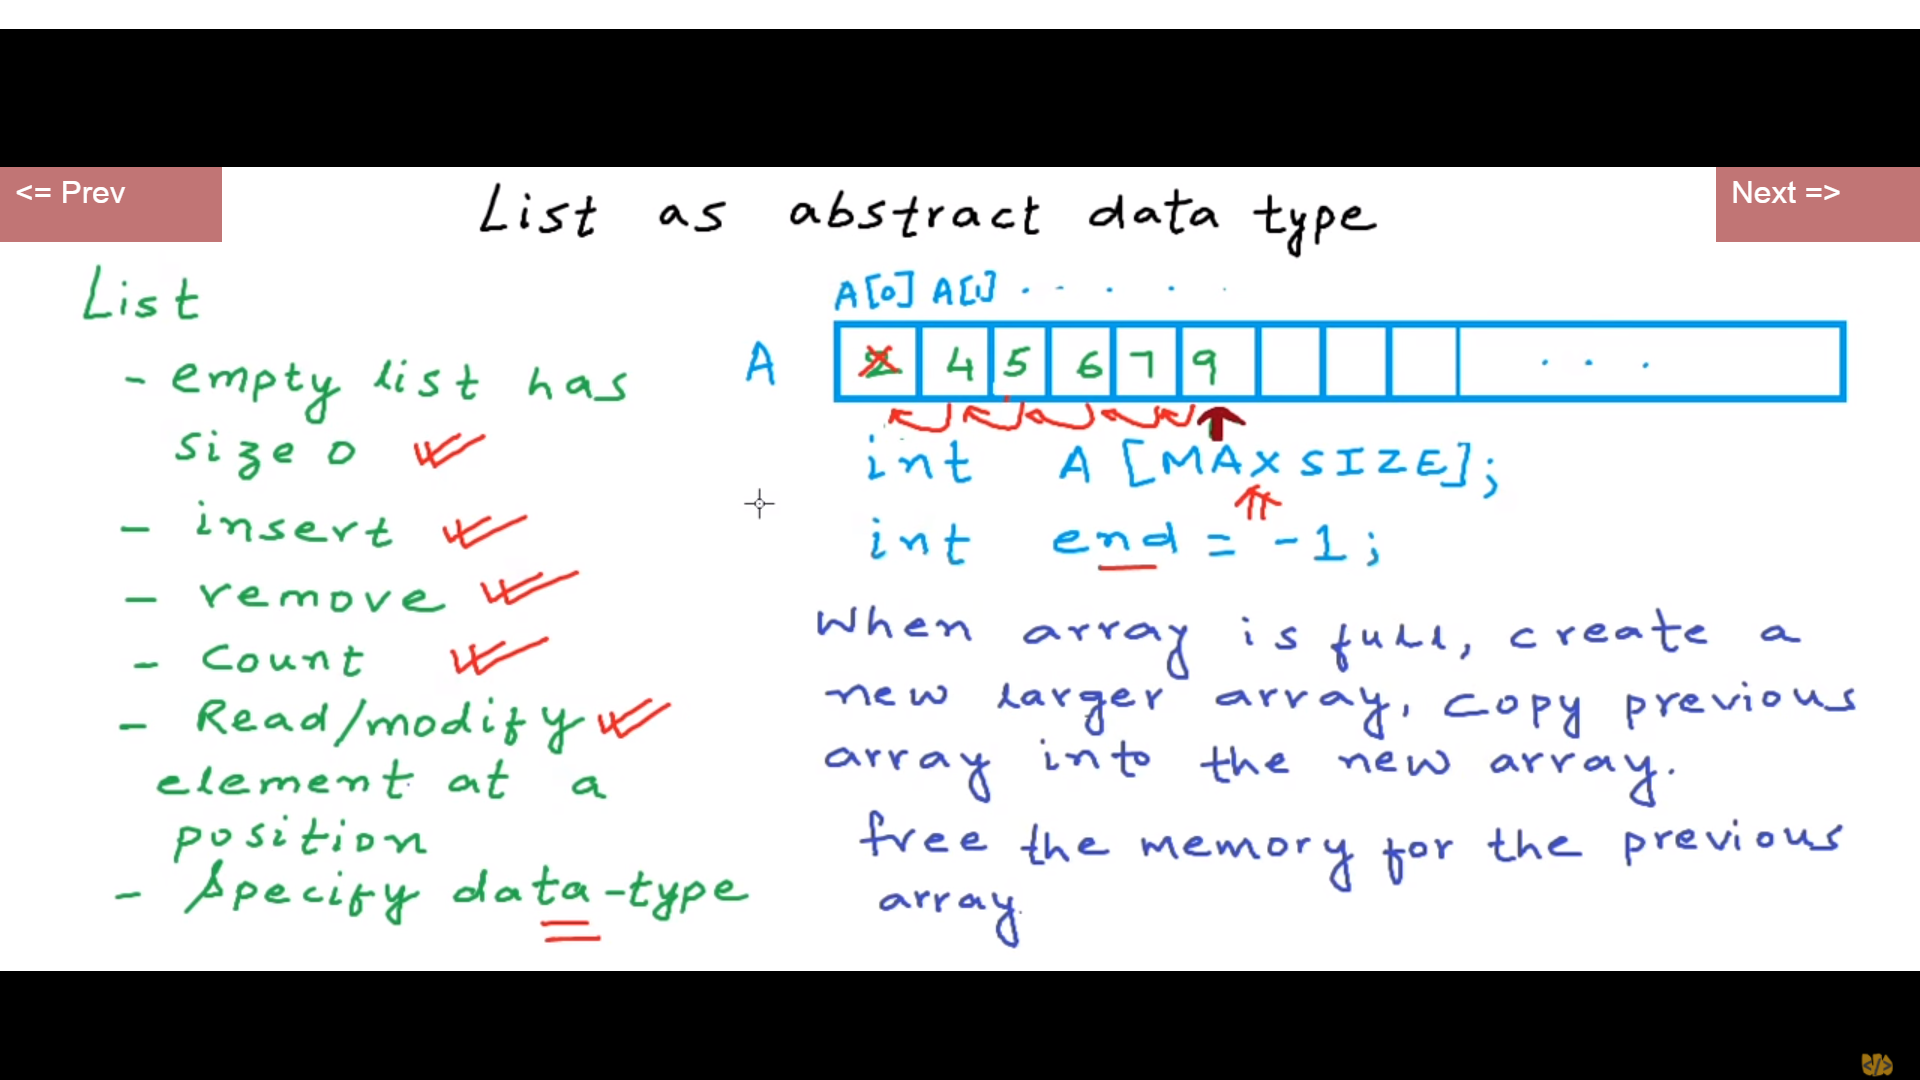 <= Prev
Next =>
List as abstract data type
List
- empty list has
size 0
- insert
- remove
- Count
- Read/modify
element at a
position
- Specify data-type
A[0] A[1] . . . . .
A 2 4 5 6 7 9 . . .
int A [MAXSIZE];
int end = -1;
When array is full, create a
new larger array, copy previous
array into the new array.
free the memory for the previous
array